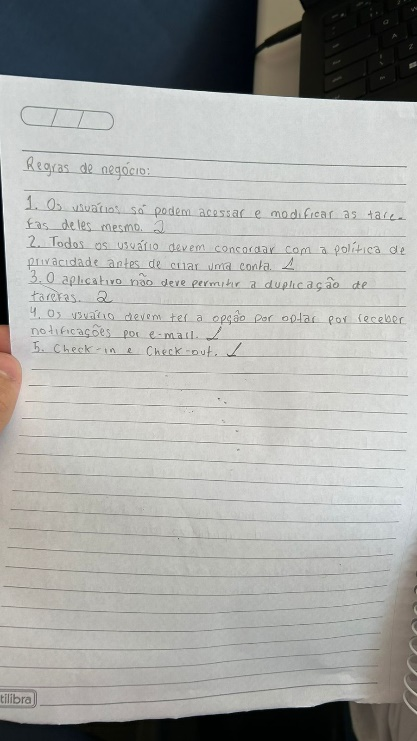 Regras de negócio:
1. Os usuários só podem acessar e modificar as tare-
fas deles mesmo. 2
2. Todos os usuário devem concordar com a política de
privacidade antes de criar uma conta. 1
3. O aplicativo não deve permitir a duplicação de
tarefas. 2
4. Os usuário devem ter a opção por optar por receber
notificações por e-mail. 1
5. Check-in e Check-out. 1
tilibra